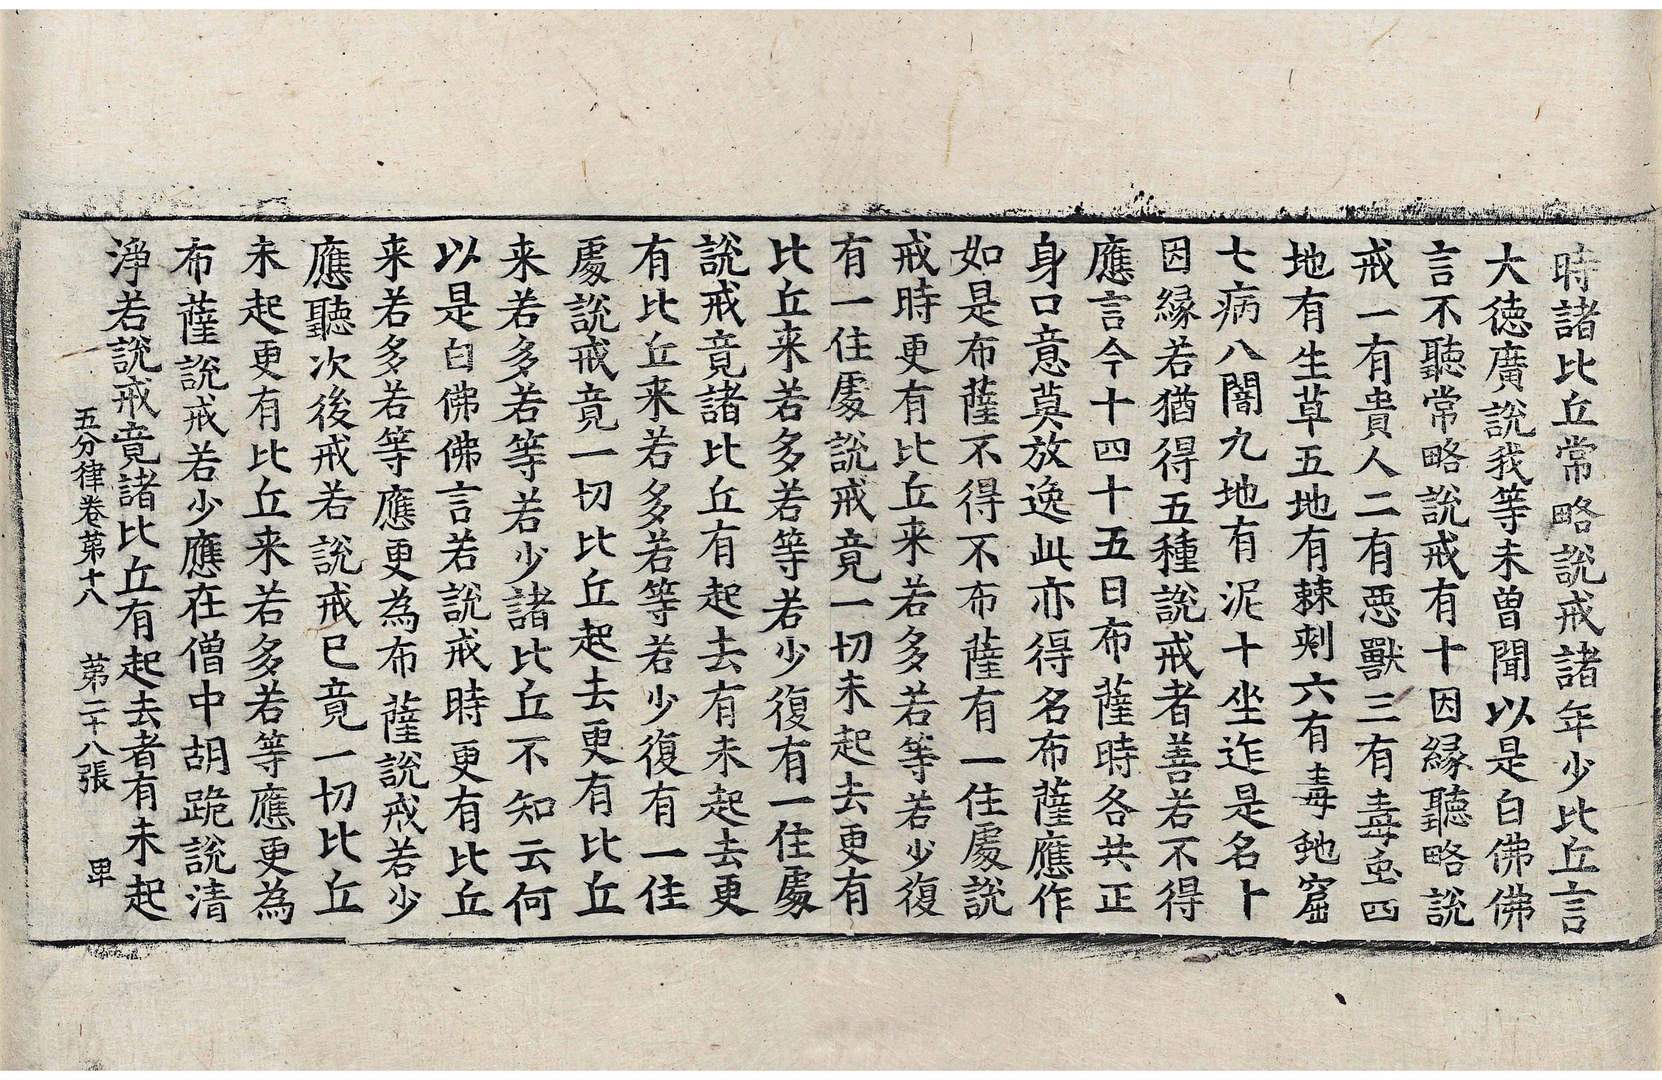 時諸比丘常略說戒諸年少比丘言
大徳廣說我等未曽聞以是白佛佛
言不聽常略說戒有十因縁聽略說
戒一有貴人二有惡獸三有毒虫四
地有生草五地有棘刺六有毒虵窟
七病八闇九地有泥十坐迮是名十
因縁若猶得五種說戒者善若不得
應言今十四十五日布薩時各共正
身口意莫放逸此亦得名布薩應作
如是布薩不得不布薩有一住處說
戒時更有比丘来若多若等若少復
有一住處說戒竟一切未起去更有
比丘来若多若等若少復有一住處
說戒竟諸比丘有起去有未起去更
有比丘来若多若等若少復有一住
處說戒竟一切比丘起去更有比丘
来若多若等若少諸比丘不知云何
以是白佛佛言若說戒時更有比丘
来若多若等應更為布薩說戒若少
應聽次後戒若說戒已竟一切比丘
未起更有比丘来若多若等應更為
布薩說戒若少應在僧中胡跪說清
淨若說戒竟諸比丘有起去者有未起
五分律卷第十八 第二十八張 卑